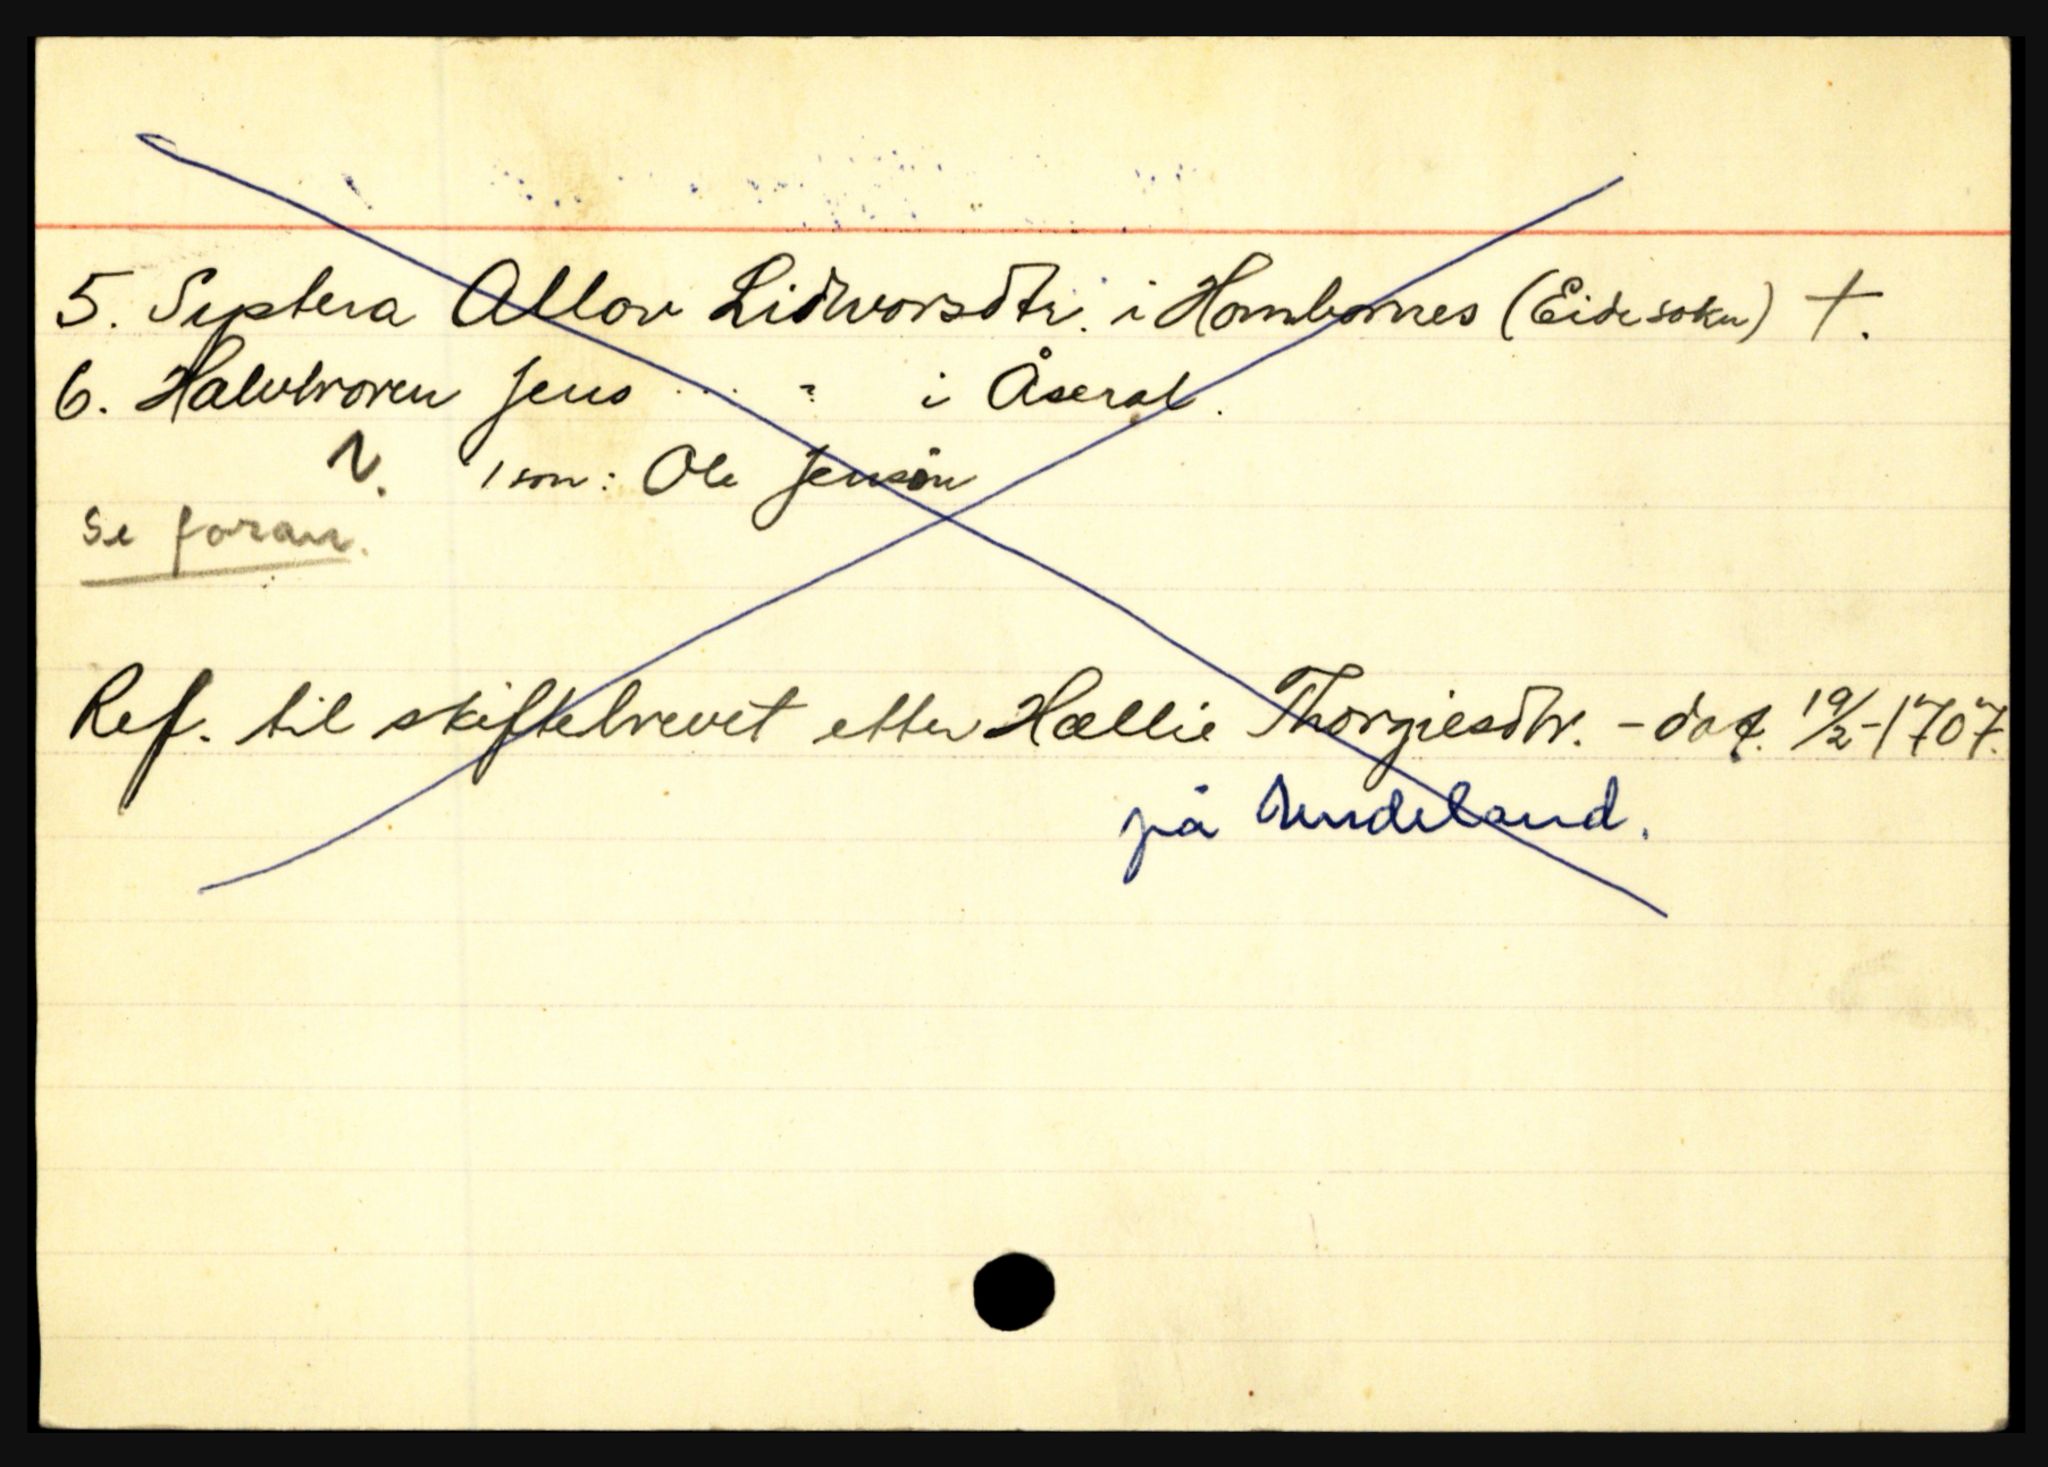 5. Systera Allov Lidvorsdtr. i Hombornes (Eide sokn) †.
6. Halvbroren Jens ... ? i Åseral.
N. 1 son: Ole Jensön
Se foran.
Ref. til skiftebrevet etter Hællie Thorgiesdtr. - dat. 19/2-1707.
på Undeland.